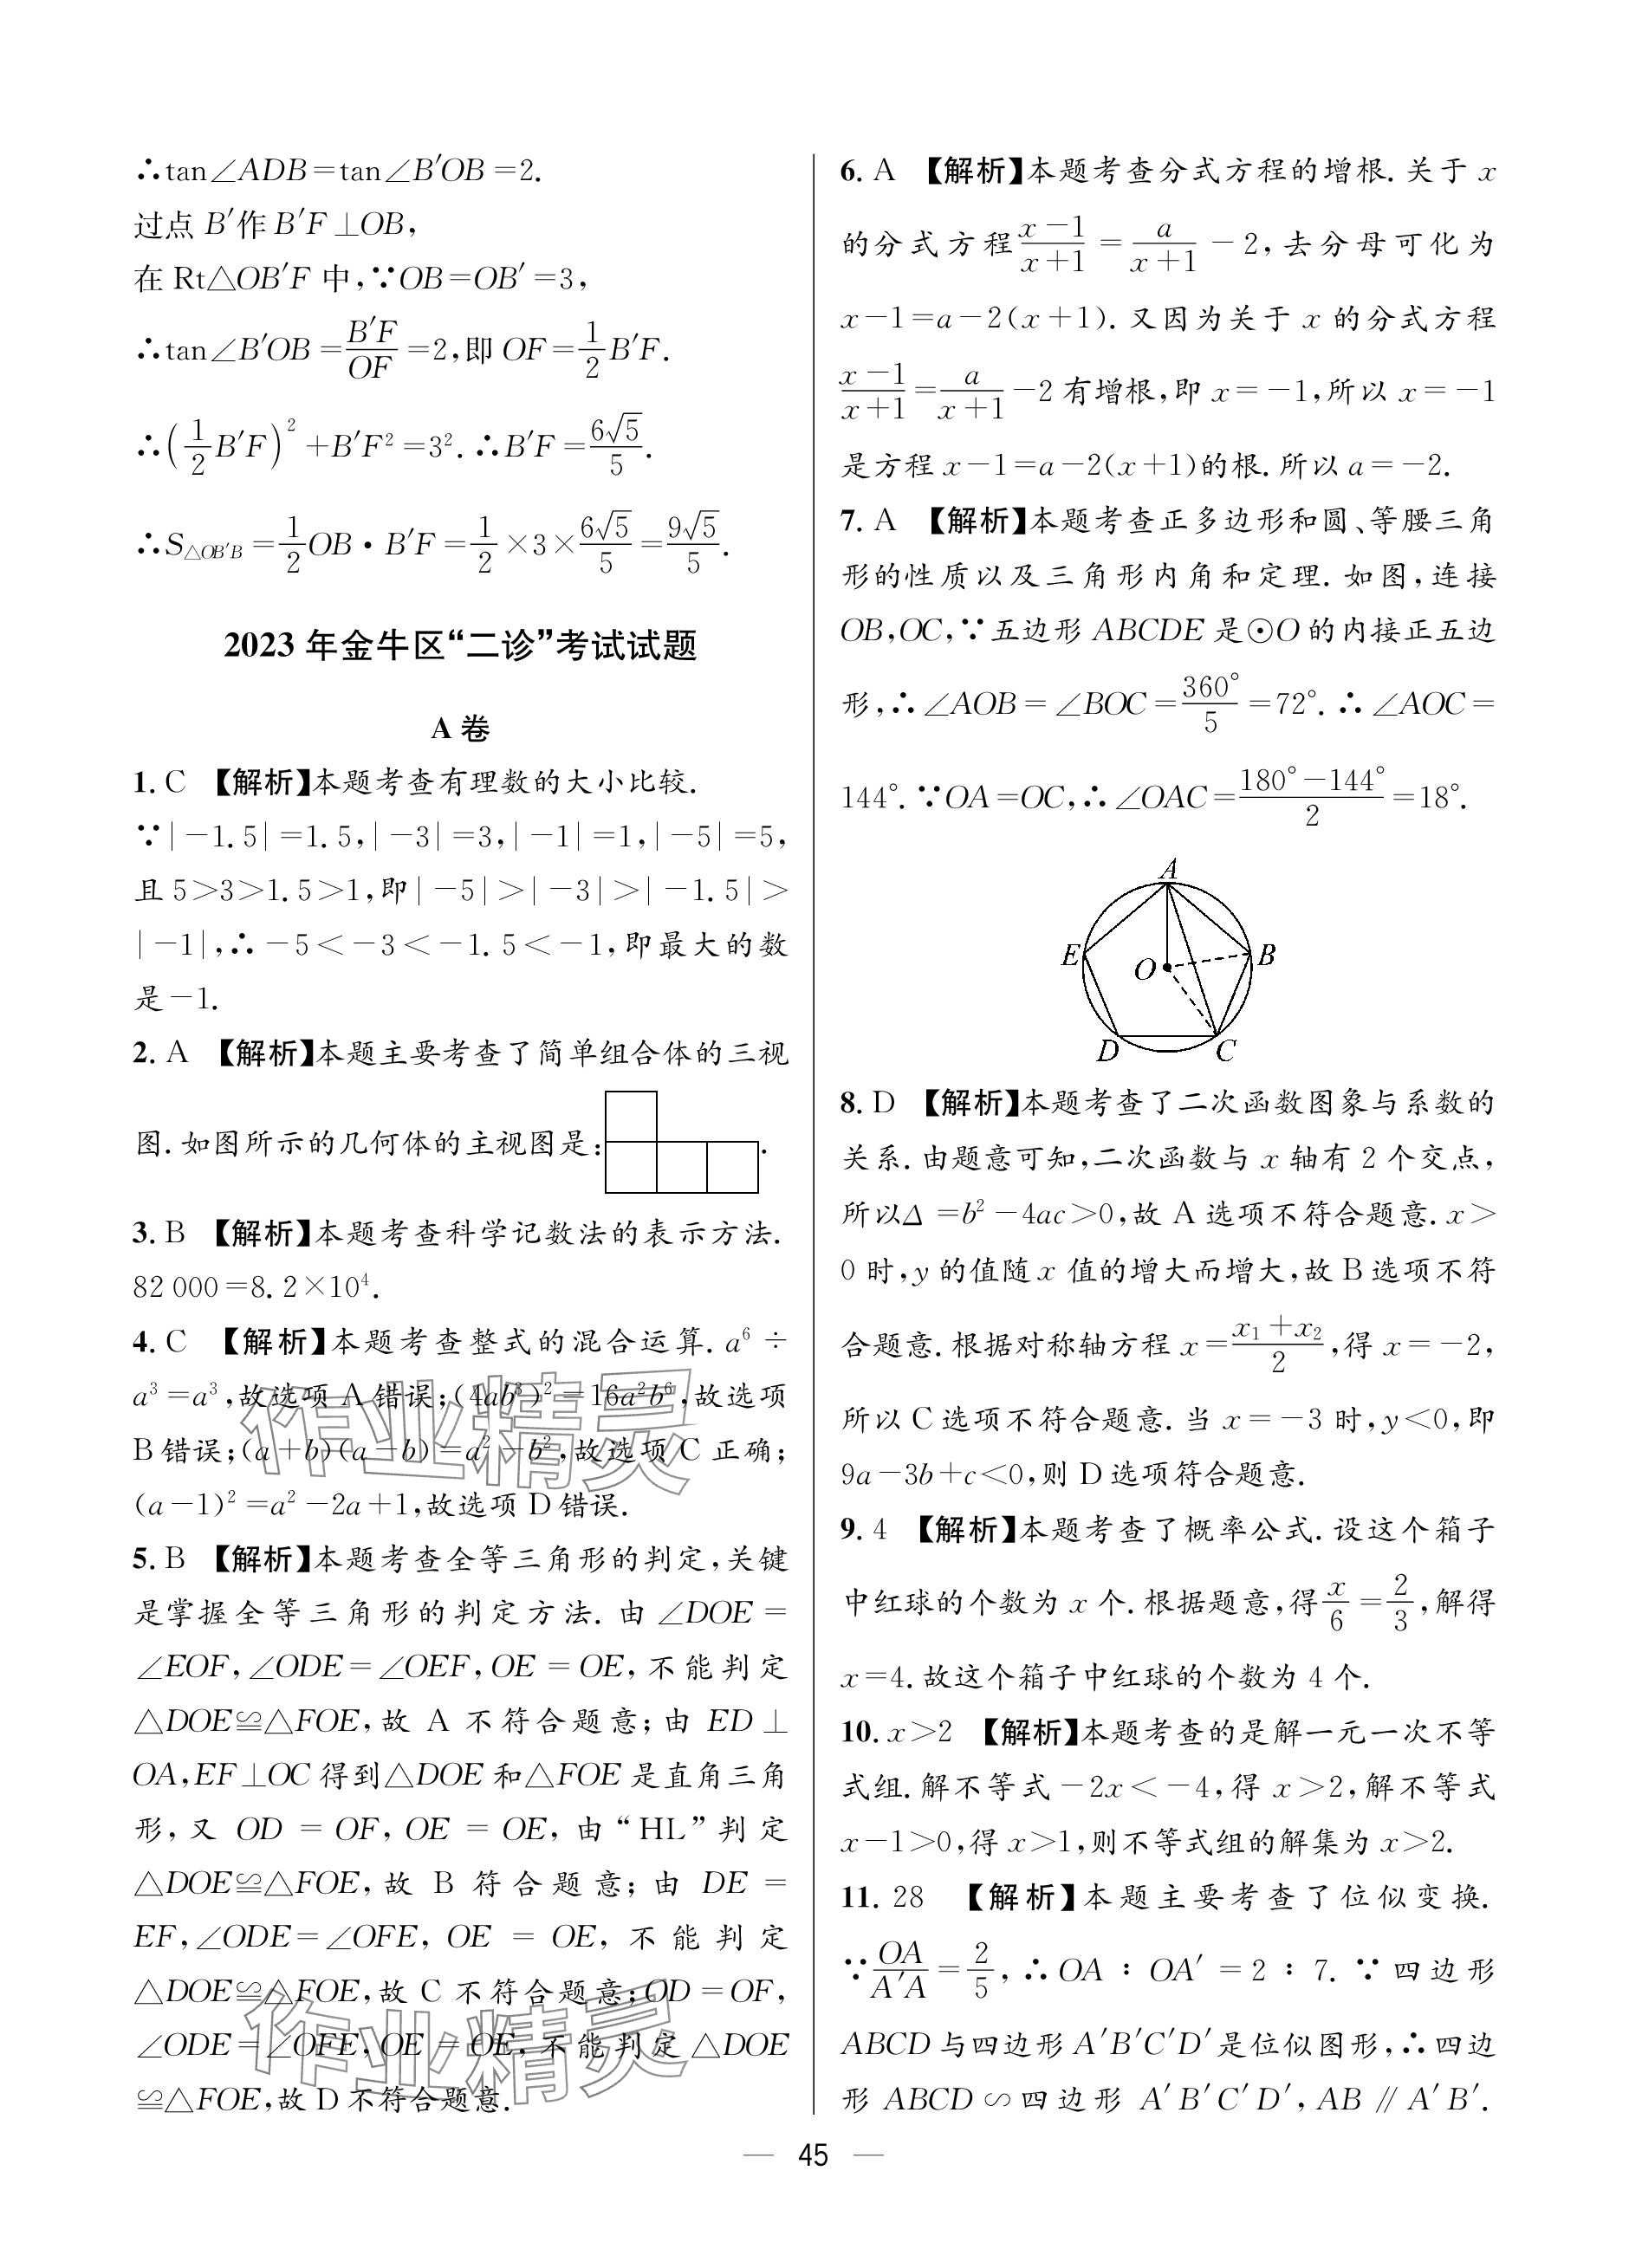 ∴tan∠ADB=tan∠B′OB=2.
过点 B′作 B′F⊥OB，
在 Rt△OB′F 中，∵OB=OB′=3，
∴tan∠B′OB=B′F/OF=2，即 OF=1/2B′F.
∴(1/2B′F)²+B′F²=3².∴B′F=6√5/5.
∴S△OB′B=1/2OB·B′F=1/2×3×6√5/5=9√5/5.
2023 年金牛区“二诊”考试试题
A 卷
1. C 【解析】本题考查有理数的大小比较.
∵|-1.5|=1.5，|-3|=3，|-1|=1，|-5|=5，
且 5>3>1.5>1，即|-5|>|-3|>|-1.5|>
|-1|，∴-5<-3<-1.5<-1，即最大的数
是-1.
2. A 【解析】本题主要考查了简单组合体的三视
图. 如图所示的几何体的主视图是：.
3. B 【解析】本题考查科学记数法的表示方法.
82 000=8.2×10⁴.
4. C 【解析】本题考查整式的混合运算. a⁶÷
a³=a³，故选项 A 错误；(4ab³)²=16a²b⁶，故选项
B 错误；(a+b)(a-b)=a²-b²，故选项 C 正确；
(a-1)²=a²-2a+1，故选项 D 错误.
5. B 【解析】本题考查全等三角形的判定，关键
是掌握全等三角形的判定方法. 由∠DOE=
∠EOF，∠ODE=∠OEF，OE=OE，不能判定
△DOE≌△FOE，故 A 不符合题意；由 ED⊥
OA，EF⊥OC 得到△DOE 和△FOE 是直角三角
形，又 OD=OF，OE=OE，由“HL”判定
△DOE≌△FOE，故 B 符合题意；由 DE=
EF，∠ODE=∠OFE，OE=OE，不能判定
△DOE≌△FOE，故 C 不符合题意；OD=OF，
∠ODE=∠OFE，OE=OE，不能判定△DOE
≌△FOE，故 D 不符合题意.
6. A 【解析】本题考查分式方程的增根. 关于 x
的分式方程(x-1)/(x+1)=a/(x+1)-2，去分母可化为
x-1=a-2(x+1). 又因为关于 x 的分式方程
(x-1)/(x+1)=a/(x+1)-2 有增根，即 x=-1，所以 x=-1
是方程 x-1=a-2(x+1)的根. 所以 a=-2.
7. A 【解析】本题考查正多边形和圆、等腰三角
形的性质以及三角形内角和定理. 如图，连接
OB，OC，∵五边形 ABCDE 是⊙O 的内接正五边
形，∴∠AOB=∠BOC=360°/5=72°.∴∠AOC=
144°.∵OA=OC，∴∠OAC=(180°-144°)/2=18°.
A
E
O
B
D
C
8. D 【解析】本题考查了二次函数图象与系数的
关系. 由题意可知，二次函数与 x 轴有 2 个交点，
所以Δ=b²-4ac>0，故 A 选项不符合题意. x>
0 时，y 的值随 x 值的增大而增大，故 B 选项不符
合题意. 根据对称轴方程 x=(x₁+x₂)/2，得 x=-2，
所以 C 选项不符合题意. 当 x=-3 时，y<0，即
9a-3b+c<0，则 D 选项符合题意.
9. 4 【解析】本题考查了概率公式. 设这个箱子
中红球的个数为 x 个. 根据题意，得x/6=2/3，解得
x=4. 故这个箱子中红球的个数为 4 个.
10. x>2 【解析】本题考查的是解一元一次不等
式组. 解不等式-2x<-4，得 x>2，解不等式
x-1>0，得 x>1，则不等式组的解集为 x>2.
11. 28 【解析】本题主要考查了位似变换.
∵OA/A′A=2/5，∴OA：OA′=2：7.∵四边形
ABCD 与四边形 A′B′C′D′是位似图形，∴四边
形 ABCD∽四边形 A′B′C′D′，AB∥A′B′.
— 45 —
作业精灵
作业精灵